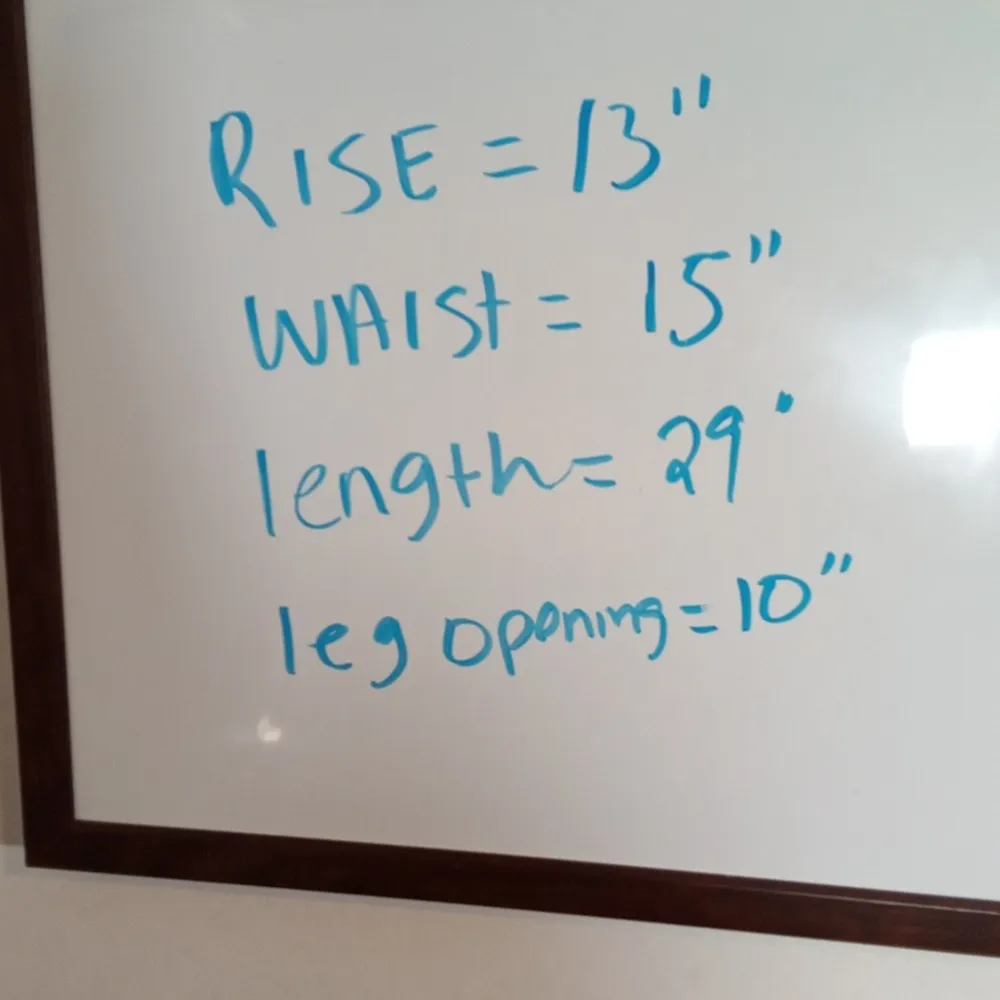 RISE = 13"
WAISt = 15"
length = 29'
leg opening = 10"